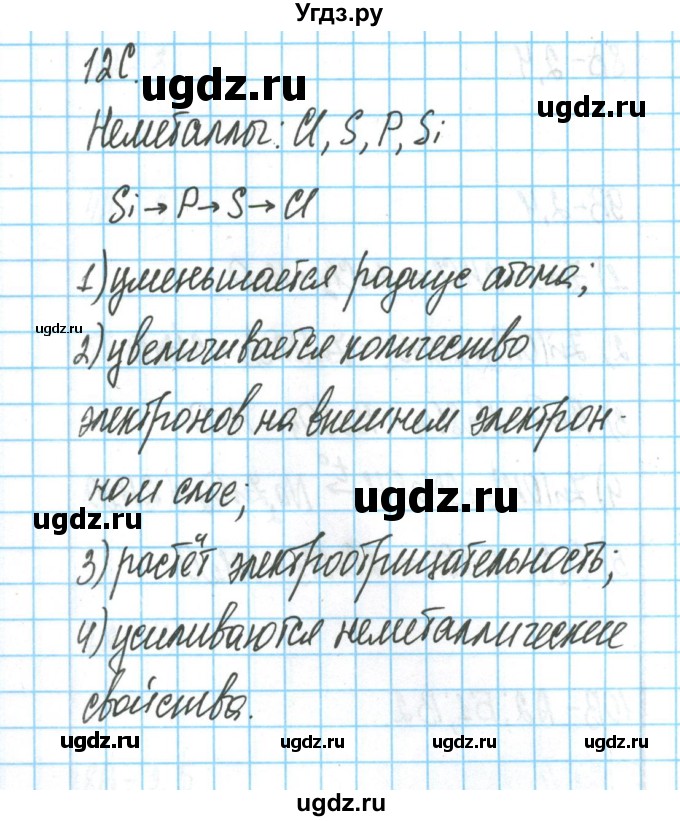 Угдз.ру
12С.
ugdz.ru
ugdz.ru
Неметаллы: Cl, S, P, Si
Si → P → S → Cl
1) уменьшается радиус атома;
ugdz.ru
2) увеличивается количество
электронов на внешнем электрон-
ном слое;
ugdz.ru
ugdz.ru
3) растёт электроотрицательность;
4) усиливаются неметаллические
свойства.
ugdz.ru
ugdz.ru
ugdz.ru
ugdz.ru
ugdz.ru